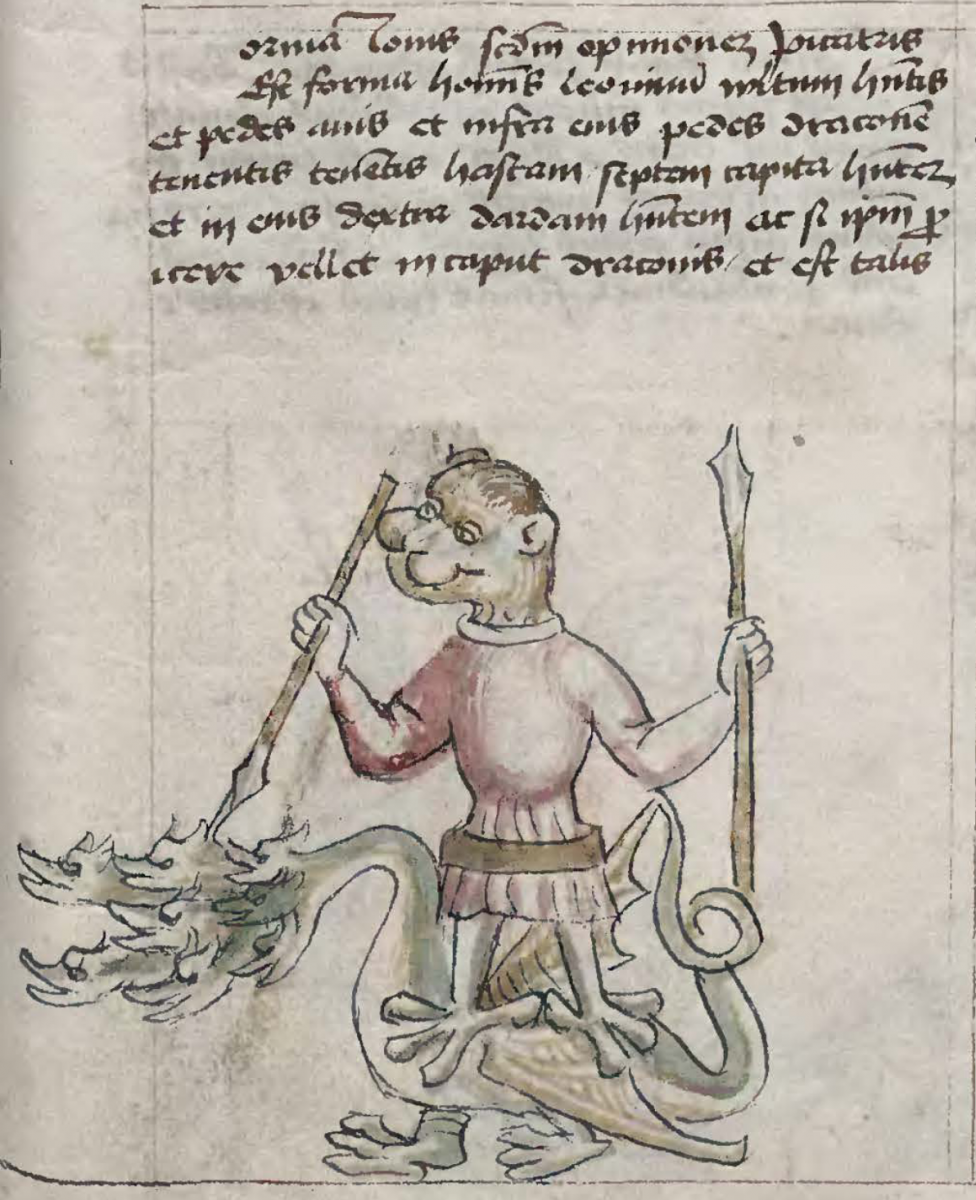 ormā Iouis scd̄m opinionez picatris
Est forma homīs leoninū wltum hn̄tis
et pedes auis et infra eius pedes draconē
tenentis tenētis hastam septem capita hn̄tez
et in eius dextra dardam hn̄tem ac si ip̄m ꝓ
icere vellet in caput draconis / et est talis